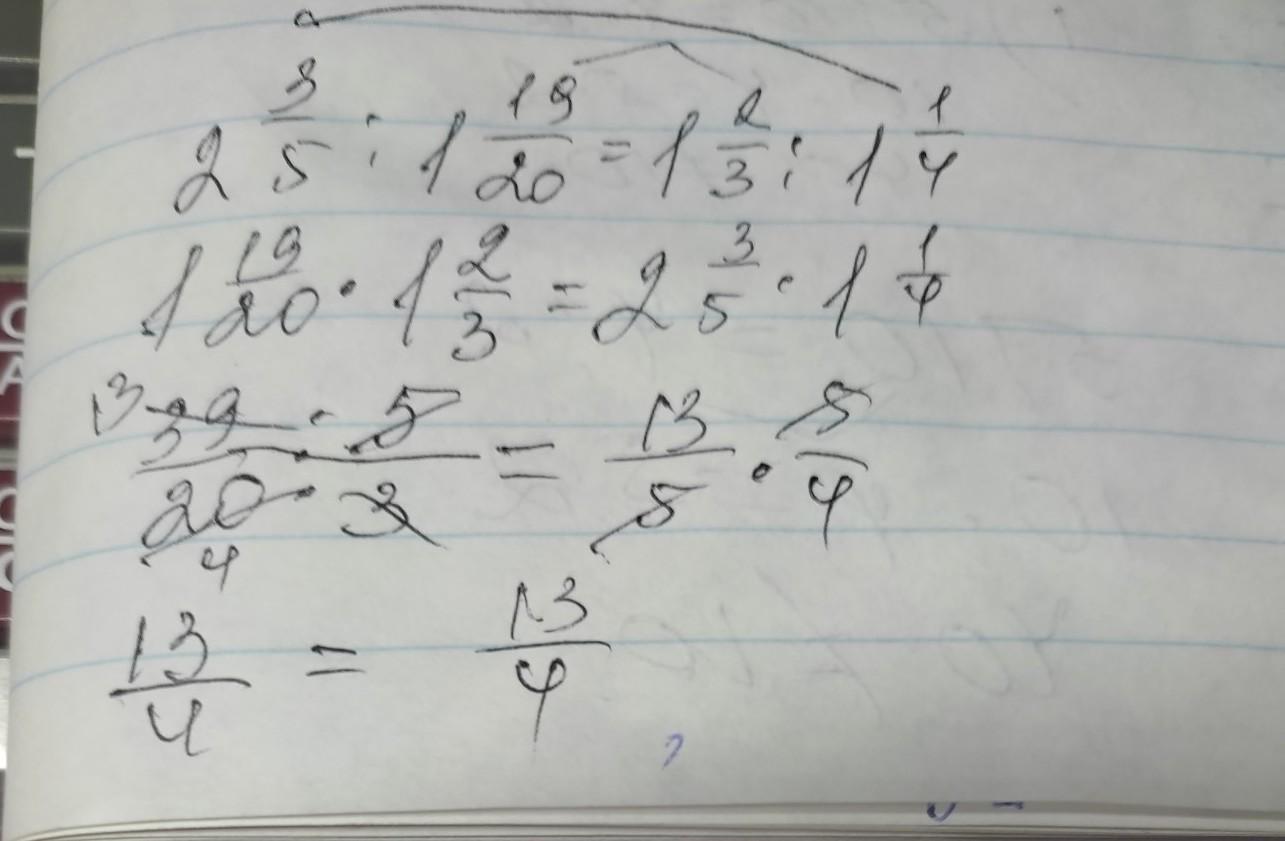 2 3/5 : 1 19/20 = 1 2/3 : 1 1/4
1 19/20 · 1 2/3 = 2 3/5 · 1 1/4
13 39 · 5 / 20 · 3 4 = 13/5 · 5/4
13/4 = 13/4